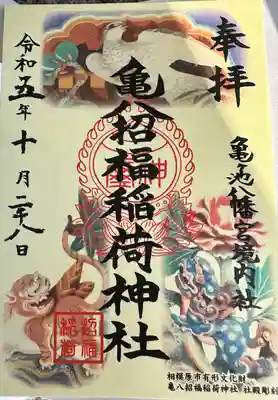 奉拝
亀ヶ池八幡宮境内社
亀八招福稲荷神社
令和五年十月二十八日
招福
稲荷
相模原市有形文化財
亀八招福稲荷神社 社殿彫刻